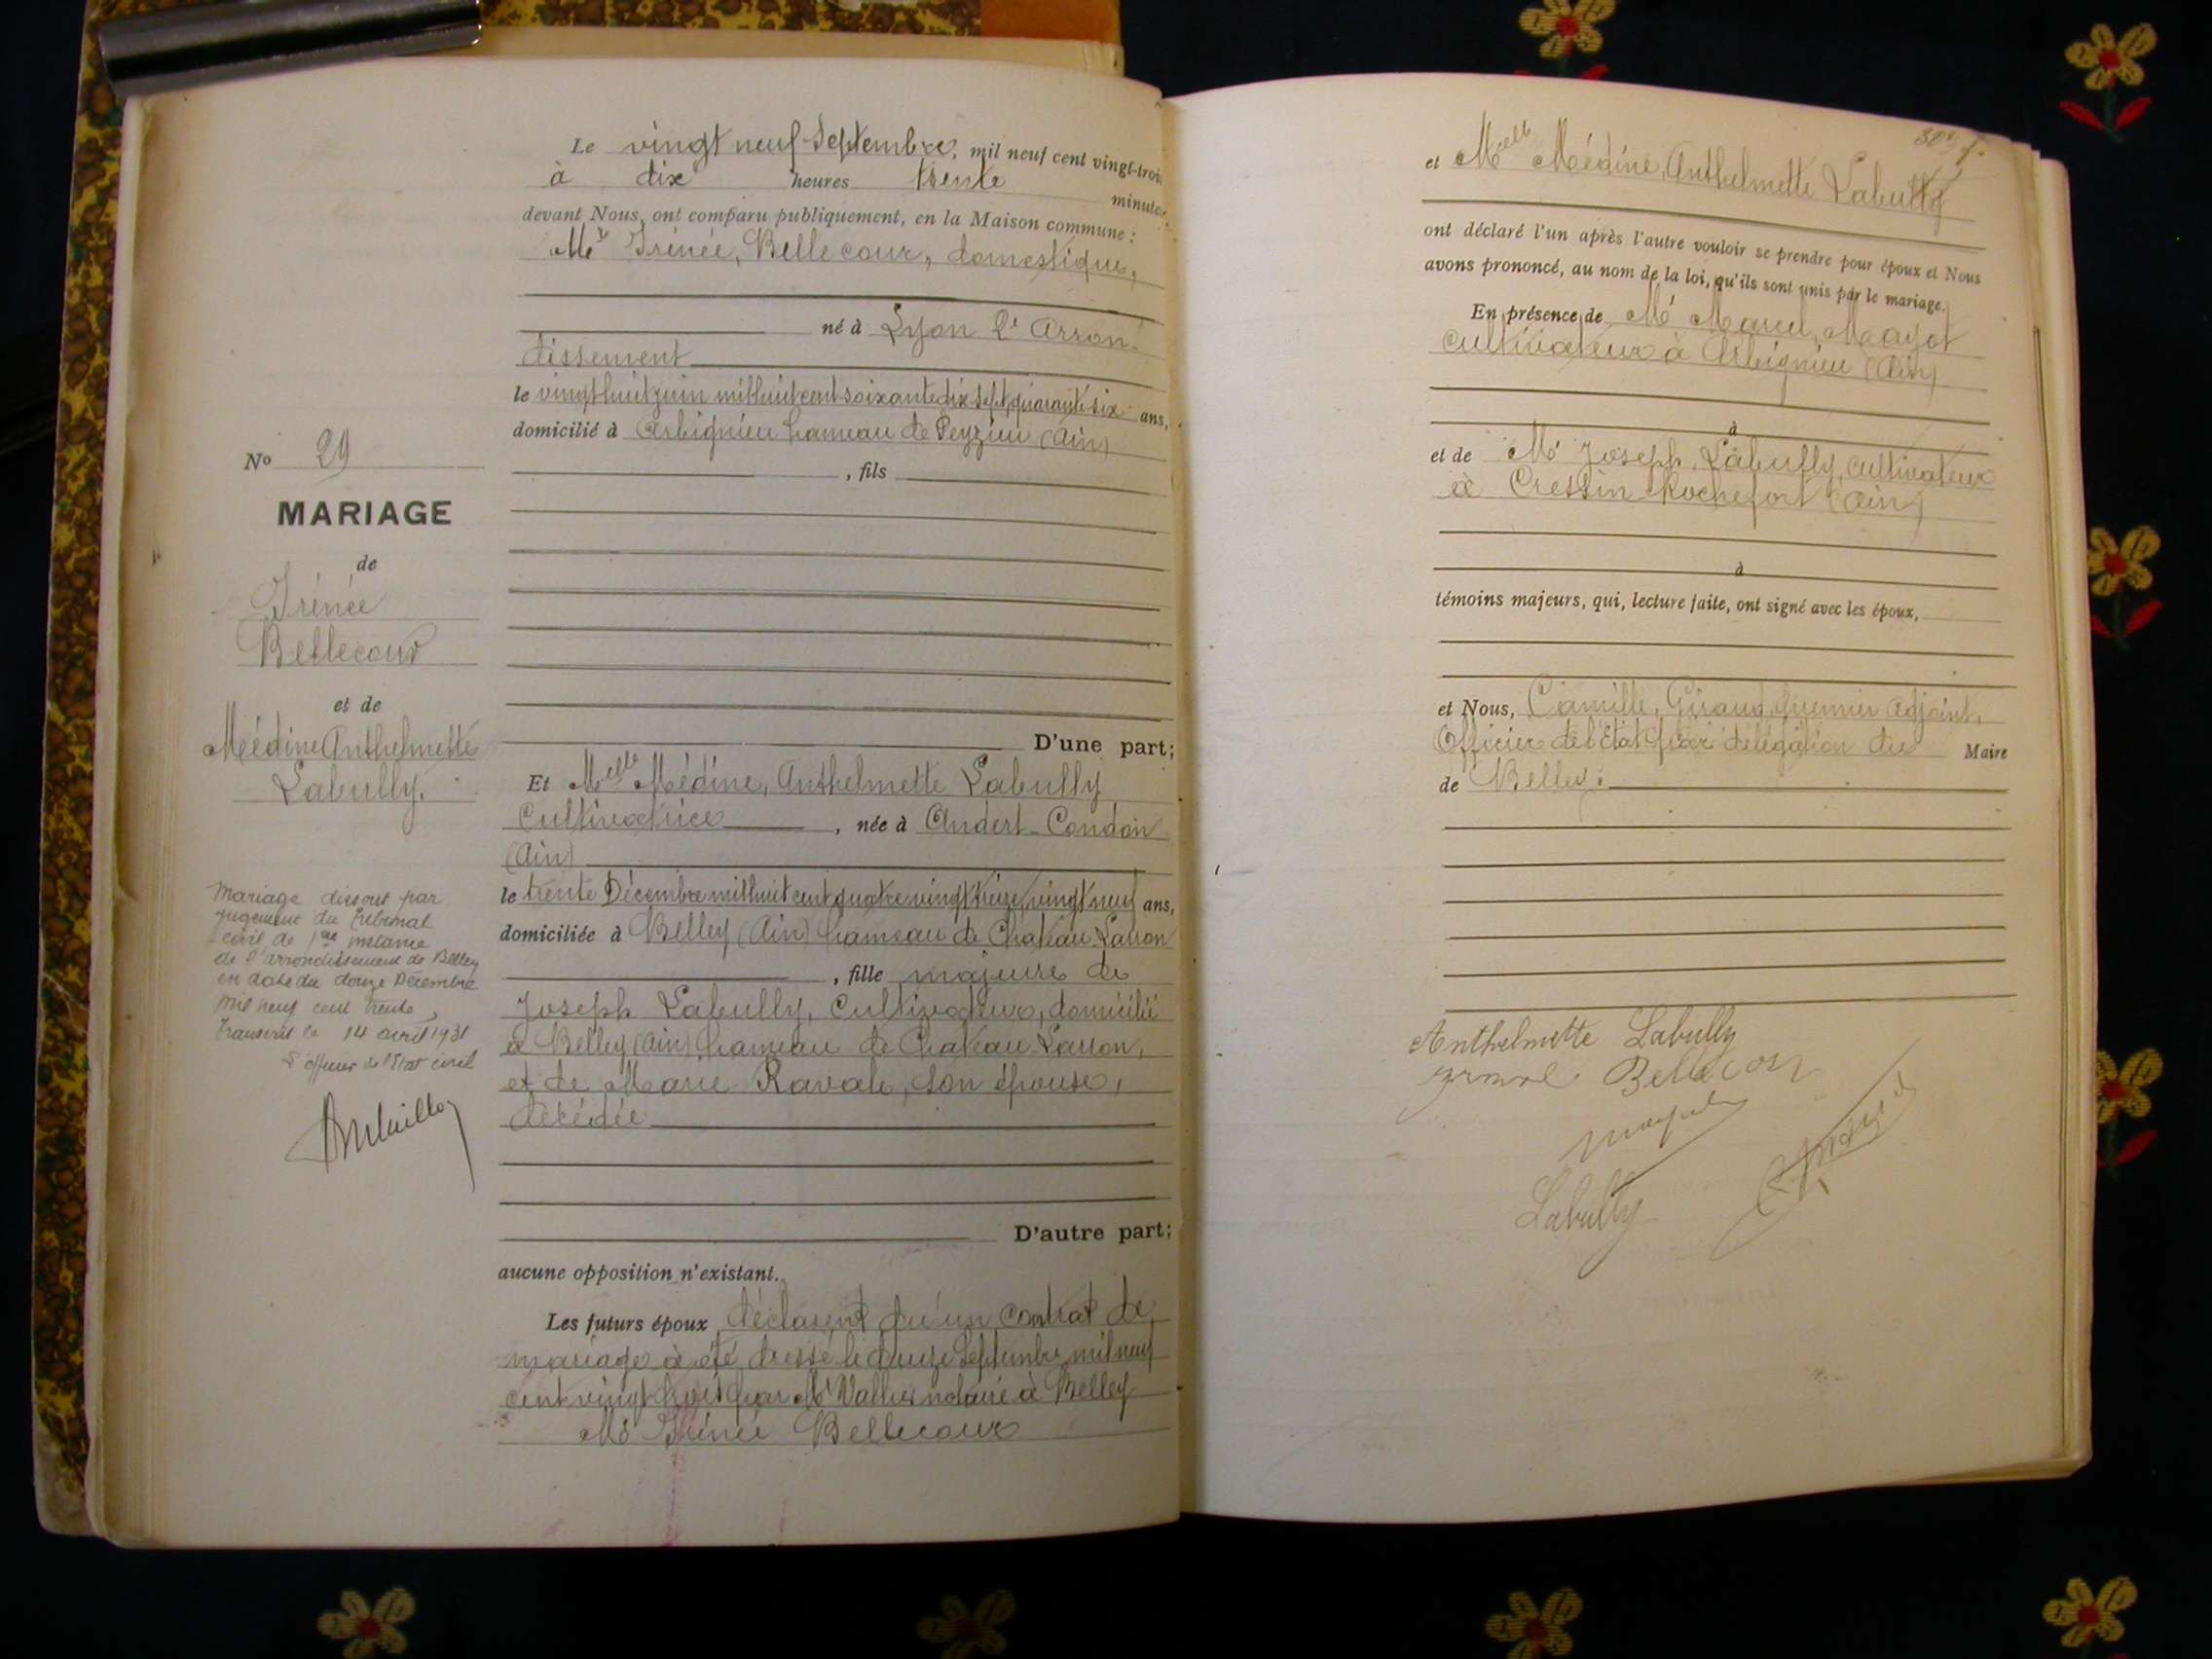 Le vingt neuf Septembre, mil neuf cent vingt-trois
à dix heures trente minutes
devant Nous, ont comparu publiquement, en la Maison commune :
Mr Irénée, Bellecour, domestique,
né à Lyon 2e Arron-
dissement
le vingt huit juin mil huit cent soixante dix sept, quarante six ans,
domicilié à Arbignieu hameau de Peyzieu (Ain)
, fils
No 29
MARIAGE
de
Irénée
Bellecour
et de
Médine Anthelmette
Labully.
Mariage dissout par
jugement du Tribunal
civil de 1ère instance
de l'arrondissement de Belley
en date du douze Décembre
mil neuf cent trente
Transcrit le 14 avril 1931
L'officier de l'Etat civil
D'une part;
Et Melle Médine, Anthelmette Labully
Cultivatrice , née à Andert-Condon
(Ain)
le trente Décembre mil huit cent quatre vingt treize, vingt neuf ans,
domiciliée à Belley (Ain) hameau de Chateau Larron
, fille majeure de
Joseph Labully, Cultivateur, domicilié
à Belley (Ain) hameau de Chateau-Larron,
et de Marie Ravale, son épouse,
décédée
D'autre part;
aucune opposition n'existant.
Les futurs époux déclarent qu'un contrat de
mariage à été dressé le douze Septembre mil neuf
cent vingt trois par Me notaire à Belley
Mr Irénée Bellecour
et Melle Médine, Anthelmette Labully
ont déclaré l'un après l'autre vouloir se prendre pour époux et Nous
avons prononcé, au nom de la loi, qu'ils sont unis par le mariage.
En présence de Mr Marcel,
cultivateur à Arbignieu (Ain)
à
et de Mr Joseph, Labully, cultivateur
à Cressin-Rochefort (Ain)
à
témoins majeurs, qui, lecture faite, ont signé avec les époux,
et Nous, Camille, Giraud, premier adjoint,
Officier de l'Etat par délégation du Maire
de Belley.
Anthelmette Labully
Bellecour
Labully